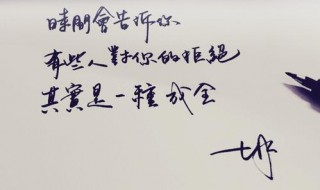 時間會告訴你
有些人對你的拒絕
其實是一種成全